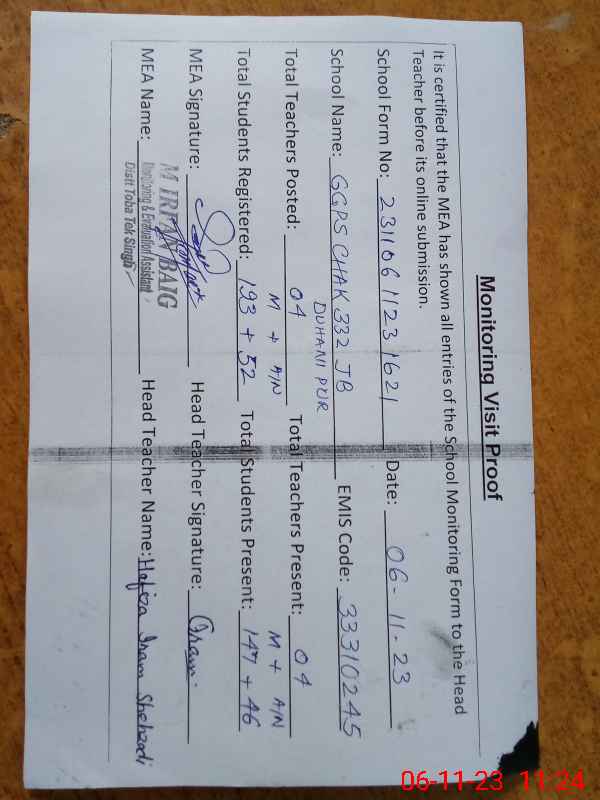 Monitoring Visit Proof
It is certified that the MEA has shown all entries of the School Monitoring Form to the Head
Teacher before its online submission.
School Form No: 2311061123 1621 Date: 06-11-23
School Name: GGPS CHAK 332 JB EMIS Code: 33310245
DUHANI PUR
Total Teachers Posted: 04 Total Teachers Present: 04
M + A/N M + A/N
Total Students Registered: 193 + 52 Total Students Present: 147 + 46
MEA Signature: Head Teacher Signature:
M IRFAN BAIG
MEA Name: Monitoring & Evaluation Assistant Head Teacher Name: Hafiza Inam Shehzadi
Distt Toba Tek Singh
06-11-23 11:24